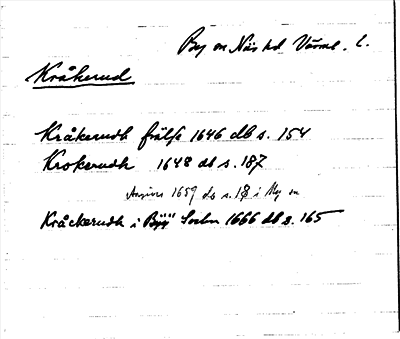 By sn Näs hd Värml. l.
Kråkerud
Kråkerudh frälse 1646 db s. 154
Krokerudh 1648 db s. 187
1659 db s. 18 i By sn
Kråckerudh i Byy Sochn 1666 db s. 165